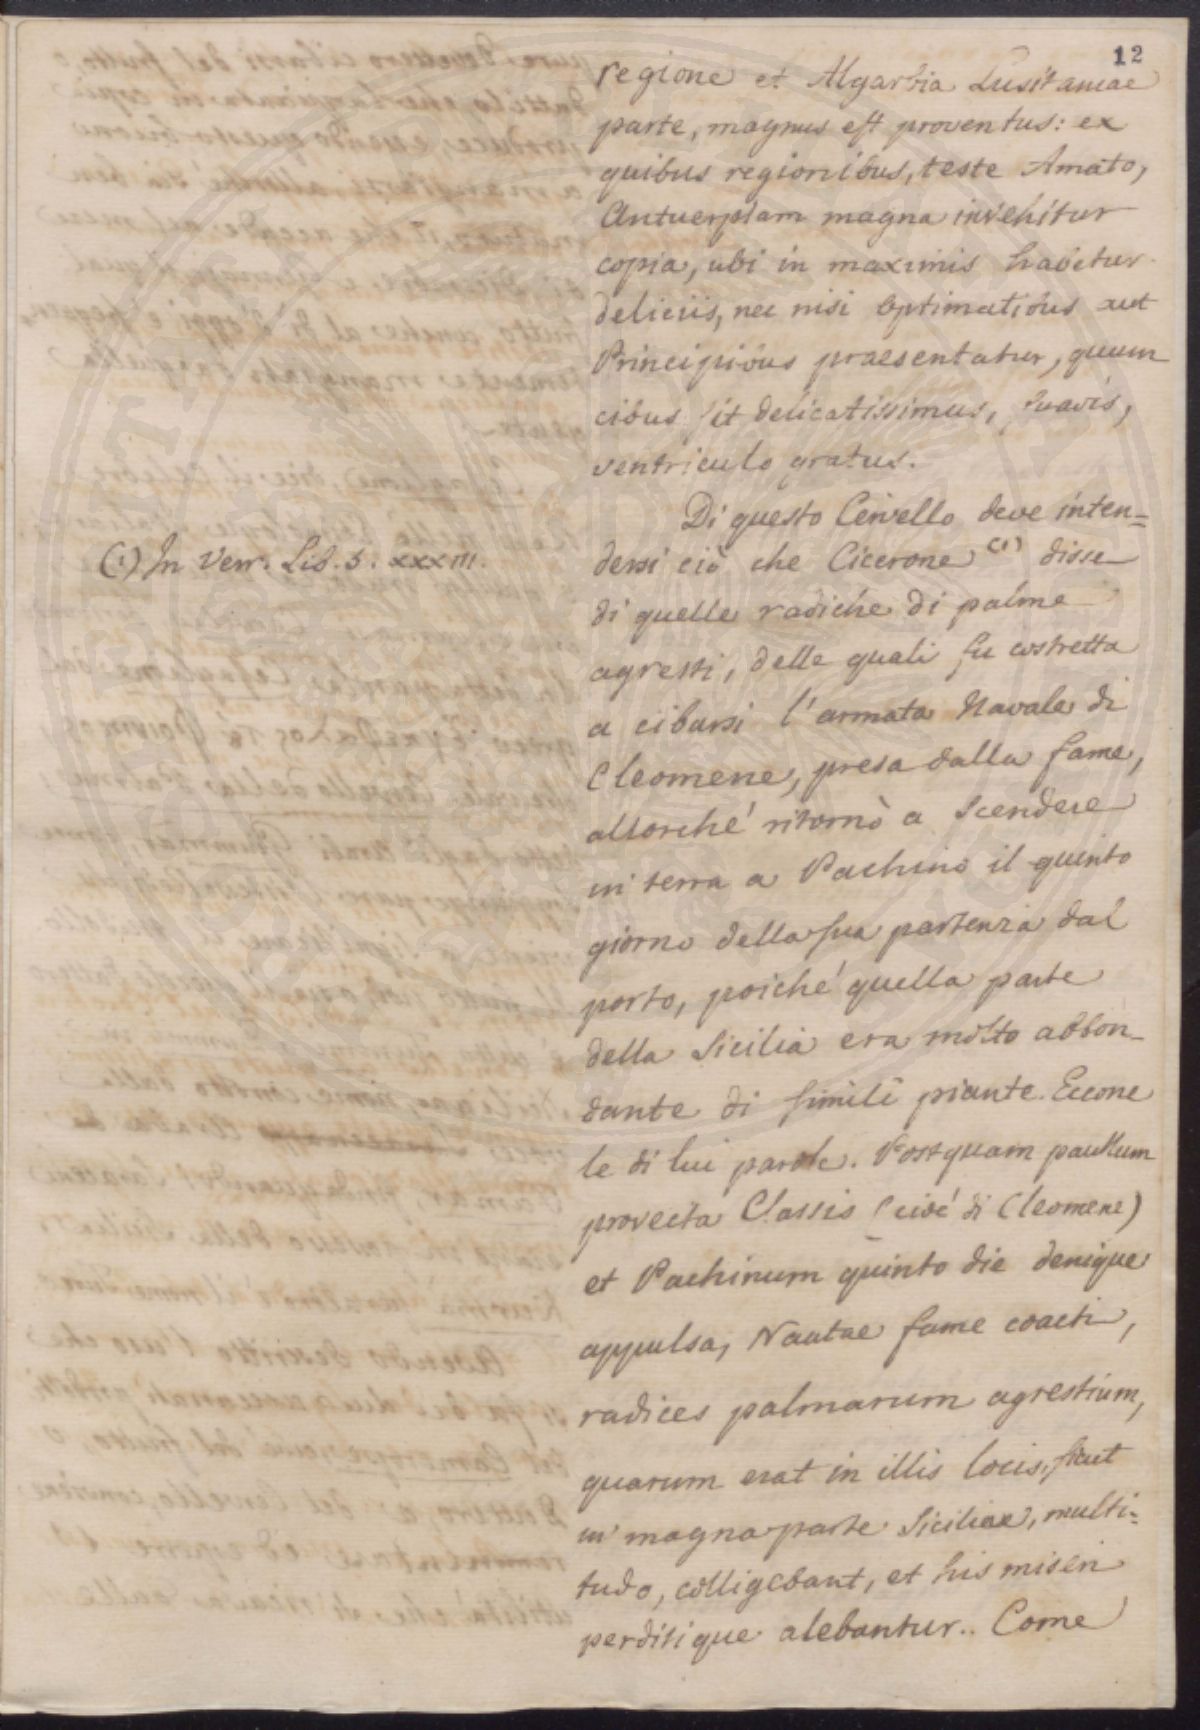 12
regione et Algarbia Lusitaniae
parte, magnus est proventus: ex
quibus regionibus, teste Amato,
Antuerpiam magna invehitur
copia, ubi in maximis habetur
deliciis, nec nisi Optimatibus aut
Principibus praesentatur, quum
cibus sit delicatissimus, suavis,
ventriculo gratus.
Di questo Cervello deve inten=
(1) In Verr. Lib. 5. XXXIII.
dersi ciò che Cicerone (1) disse
di quelle radiche di palme
agresti, delle quali fu costretta
a cibarsi l'armata Navale di
Cleomene, presa dalla fame,
allorché ritornò a scendere
in terra a Pachino il quinto
giorno della sua partenza dal
porto, poiché quella parte
della Sicilia era molto abbon-
dante di simili piante. Eccone
le di lui parole. Postquam paullum
provecta Classis (cioé di Cleomene)
et Pachinum quinto die denique
appulsa, Nautae fame coacti,
radices palmarum agrestium,
quarum erat in illis locis, sicut
in magna parte Siciliae, multi=
tudo, colligebant, et his miseri
perditique alebantur.. Come